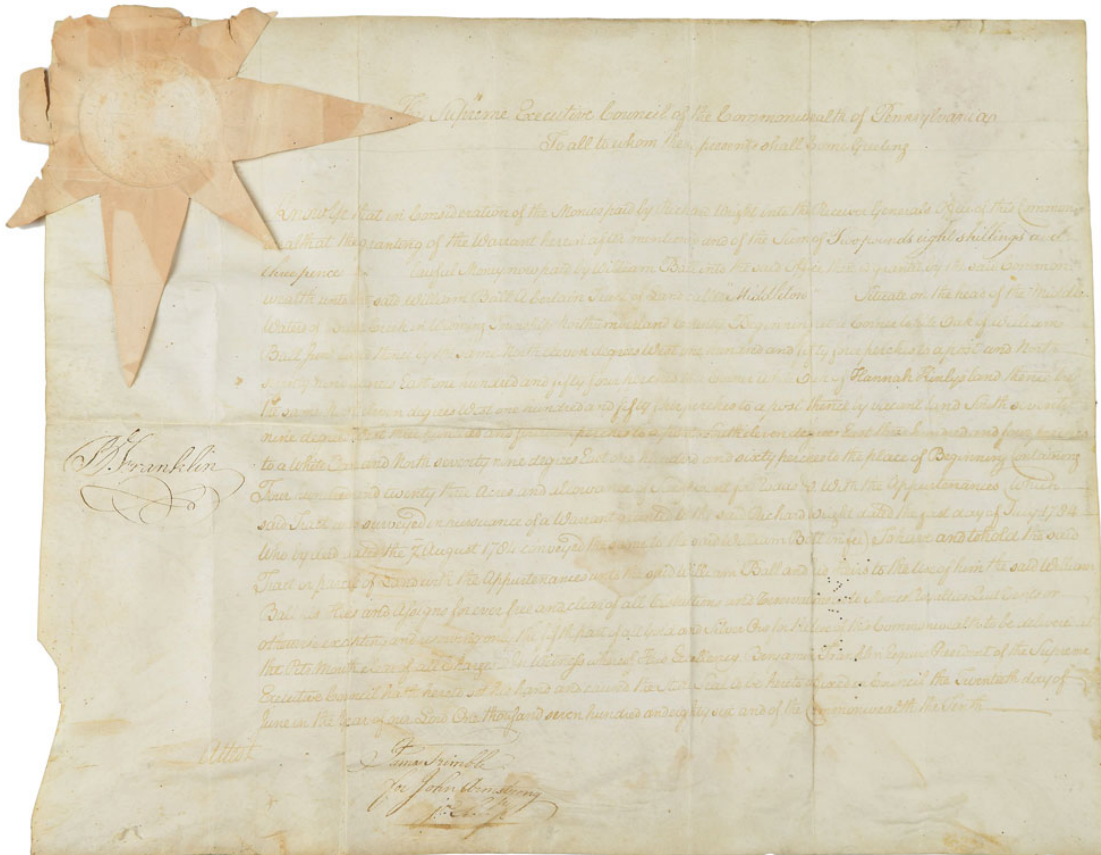 The Supreme Executive Council of the Commonwealth of Pennsylvania
To all to whom these presents shall Come Greeting
Know Ye that in Consideration of the Monies paid by Richard Wright into the Receiver Generals Office of this Common-
wealth at the granting of the Warrant herein after mentioned and of the Sum of Two pounds eight shillings and
three pence lawful Money now paid by William Ball into the said Office there is granted by the said Common
wealth unto the said William Ball A Certain Tract of Land called Middleton Situate on the head of the Middle
Waters of Creek in Township Northumberland County Beginning at a Corner White Oak of William
Ball thence by the same North eleven degrees West one hundred and fifty four perches to a post and North
seventy nine degrees East one hundred and fifty four perches to a corner White Oak of Hannah land thence by
the same North eleven degrees West one hundred and fifty perches to a post thence by vacant Land South seventy
nine degrees West three hundred and perches to a South eleven degrees East three hundred and four perches
to a White Oak and North seventy nine degrees East one hundred and sixty perches to the place of Beginning Containing
Four hundred and twenty three Acres and allowance of for Roads &c. With the Appurtenances (Which
said Tract was surveyed in pursuance of a Warrant granted to the said Richard Wright dated the first day of July 1784
Who by deed dated the 7 August 1784 conveyed the same to the said William Ball in fee) To have and to hold the said
Tract or parcel of Land with the Appurtenances unto the said William Ball and his Heirs to the Use of him the said William
Ball his Heirs and Assigns forever free and clear of all Restrictions and Reservations as to Mines Royalties Quit Rents or
otherwise excepting and reserving only the fifth part of all Gold and Silver Ore for the Use of this Commonwealth to be delivered at
the Pits Mouth clear of all Charges In Witness whereof His Excellency Benjamin Franklin Esquire President of the Supreme
Executive Council hath hereto set his hand and caused the State Seal to be hereto affixed in Council the Twentieth day of
June in the Year of our Lord One thousand seven hundred and eighty six and of the Commonwealth the Tenth
B Franklin
Attest
James Trimble
for John Armstrong